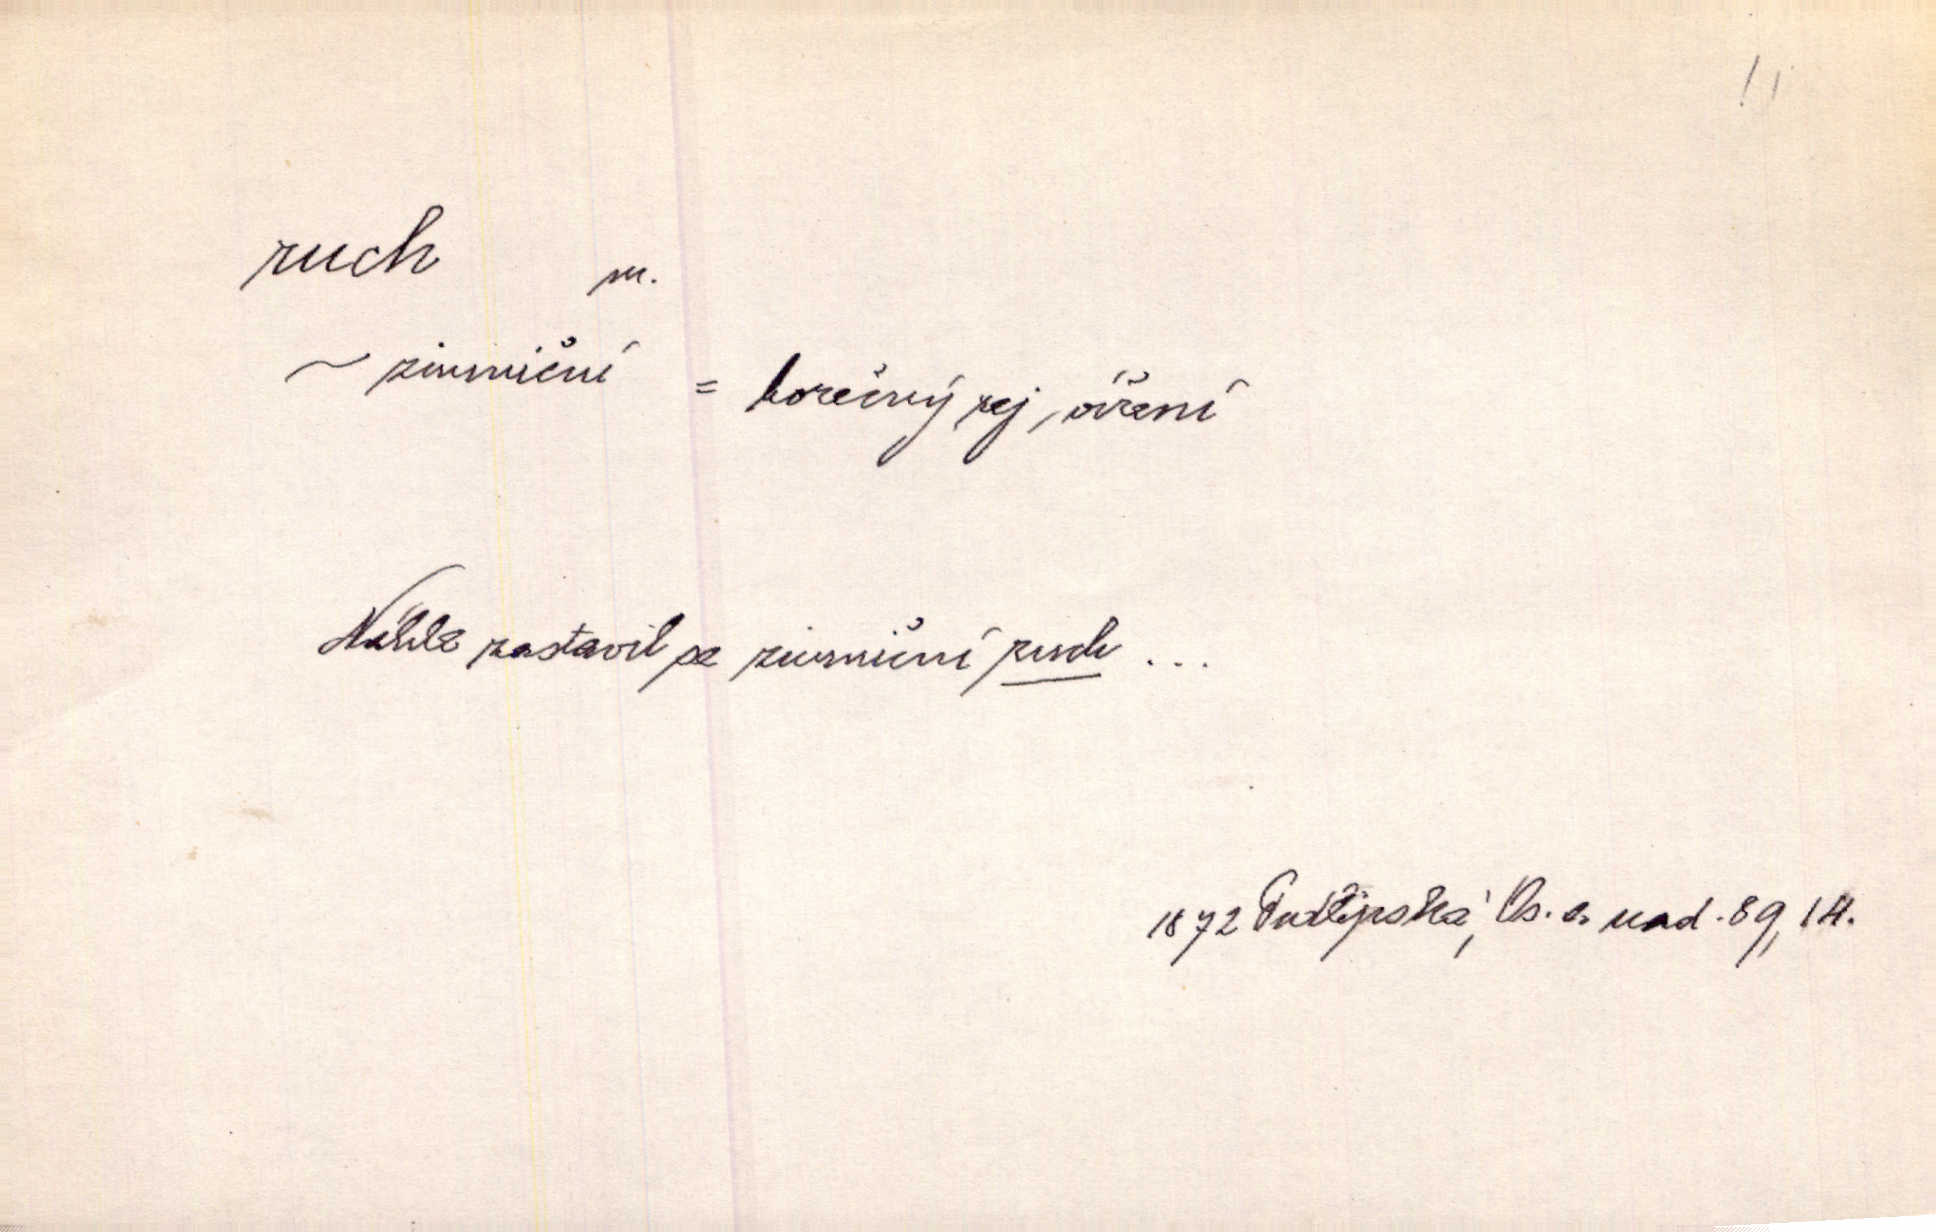 !!
ruch m.
~ zimniční = horečný rej, víření
Náhle zastavil se zimniční ruch ...
1872 Podlipská, Os. a. nad. 89, 14.